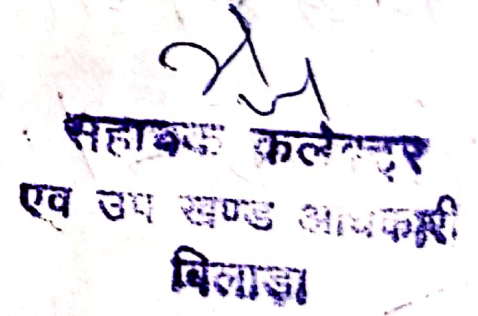 सहायक कलेक्टर
एवं उप खण्ड अधिकारी
बिलाड़ा